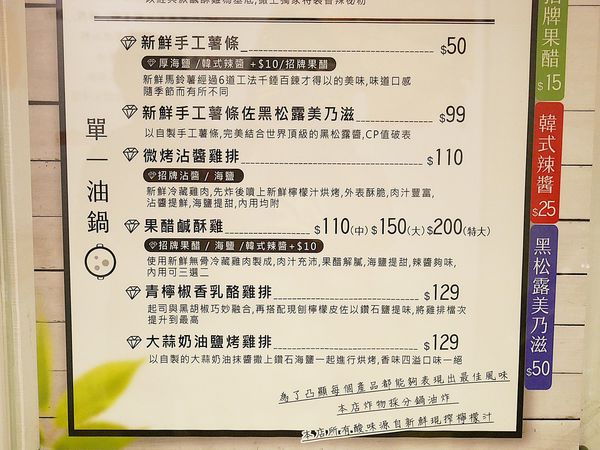 新鮮手工薯條 $50
厚海鹽 / 韓式辣醬 +$10 / 招牌果醋
新鮮馬鈴薯經過6道工法千錘百鍊才得以的美味,味道口感
隨季節而有所不同
新鮮手工薯條佐黑松露美乃滋 $99
以自製手工薯條,完美結合世界頂級的黑松露醬,CP值破表
微烤沾醬雞排 $110
招牌沾醬 / 海鹽
新鮮冷藏雞肉,先炸後噴上新鮮檸檬汁烘烤,外表酥脆,肉汁豐富,
沾醬提鮮,海鹽提甜,內用均附
果醋鹹酥雞 $110(中) $150(大) $200(特大)
招牌果醋 / 海鹽 / 韓式辣醬+$10
使用新鮮無骨冷藏雞肉製成,肉汁充沛,果醋解膩,海鹽提甜,辣醬夠味,
內用可三選二
青檸椒香乳酪雞排 $129
起司與黑胡椒巧妙融合,再搭配現刨檸檬皮佐以鑽石鹽提味,將雞排檔次
提升到最高
大蒜奶油鹽烤雞排 $129
以自製的大蒜奶油抹醬撒上鑽石海鹽一起進行烘烤,香味四溢口味一絕
為了凸顯每個產品都能夠表現出最佳風味
本店炸物採分鍋油炸
本店所有酸味源自新鮮現搾檸檬汁
單一油鍋
招牌果醋
$15
韓式辣醬
$25
黑松露美乃滋
$50